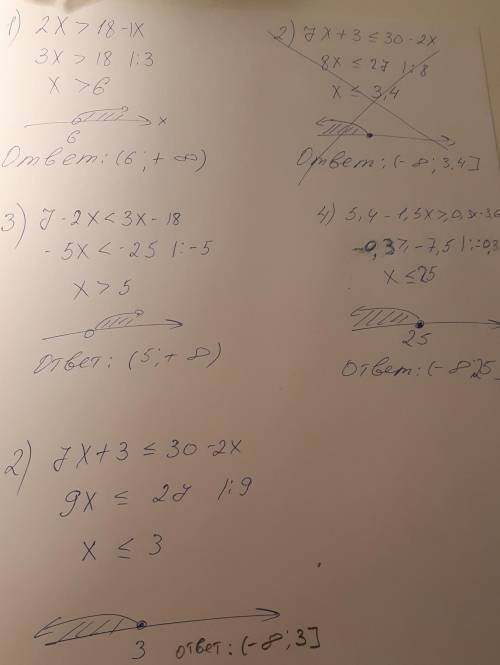 1) 2x > 18 - 1x
3x > 18 |:3
x > 6
6 x
Ответ: (6 ; + ∞)
2) 7x + 3 ≤ 30 - 2x
8x ≤ 27 |:8
x ≤ 3,4
Ответ: (- 8 ; 3,4]
3) 7 - 2x < 3x - 18
- 5x < - 25 |: -5
x > 5
Ответ: (5 ; + 8)
4) 5,4 - 1,5x ≥ 0,3x - 3,6
-0,3 ≥ -7,5 |: -0,3
x ≤ 25
25
Ответ: (- 8; 25]
2) 7x + 3 ≤ 30 - 2x
9x ≤ 27 |:9
x ≤ 3
3 ответ: (- 8 ; 3]